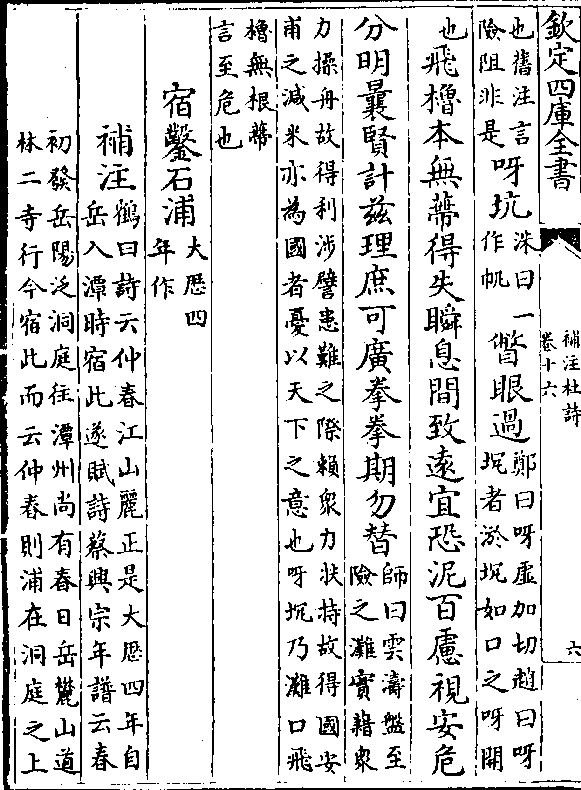 欽定四庫全書
補注杜詩
卷十六
六
也舊注言
險阻非是
呀坑
洙曰一
作帆
瞥眼過
鄭曰呀虛加切趙曰呀
坑者於坑如口之呀開
也
飛櫓本無蔕得失瞬息間致遠宜恐泥百慮視安危
分明曩賢計茲理庶可廣拳拳期勿替
師曰雲濤盤至
險之灘實藉衆
力操舟故得利涉譬患難之際賴衆力扶持故得國安
甫之減米亦為國者憂以天下之意也呀坑乃灘口飛
櫓無根蔕
言至危也
宿鑿石浦
大厯四
年作
補注
鶴曰詩云仲春江山麗正是大厯四年自
岳入潭時宿此遂賦詩蔡興宗年譜云春
初發岳陽泛洞庭往潭州尚有春日岳麓山道
林二寺行今宿此而云仲春則浦在洞庭之上